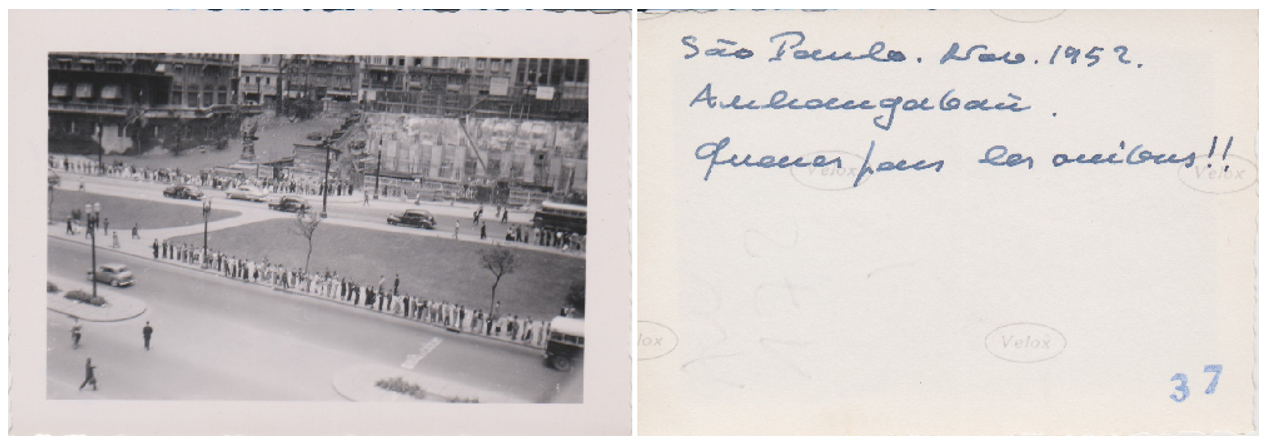 São Paulo. Nov. 1952.
Anhangabaú.
Queues pour les onibus!!
Velox Velox
lox Velox
37